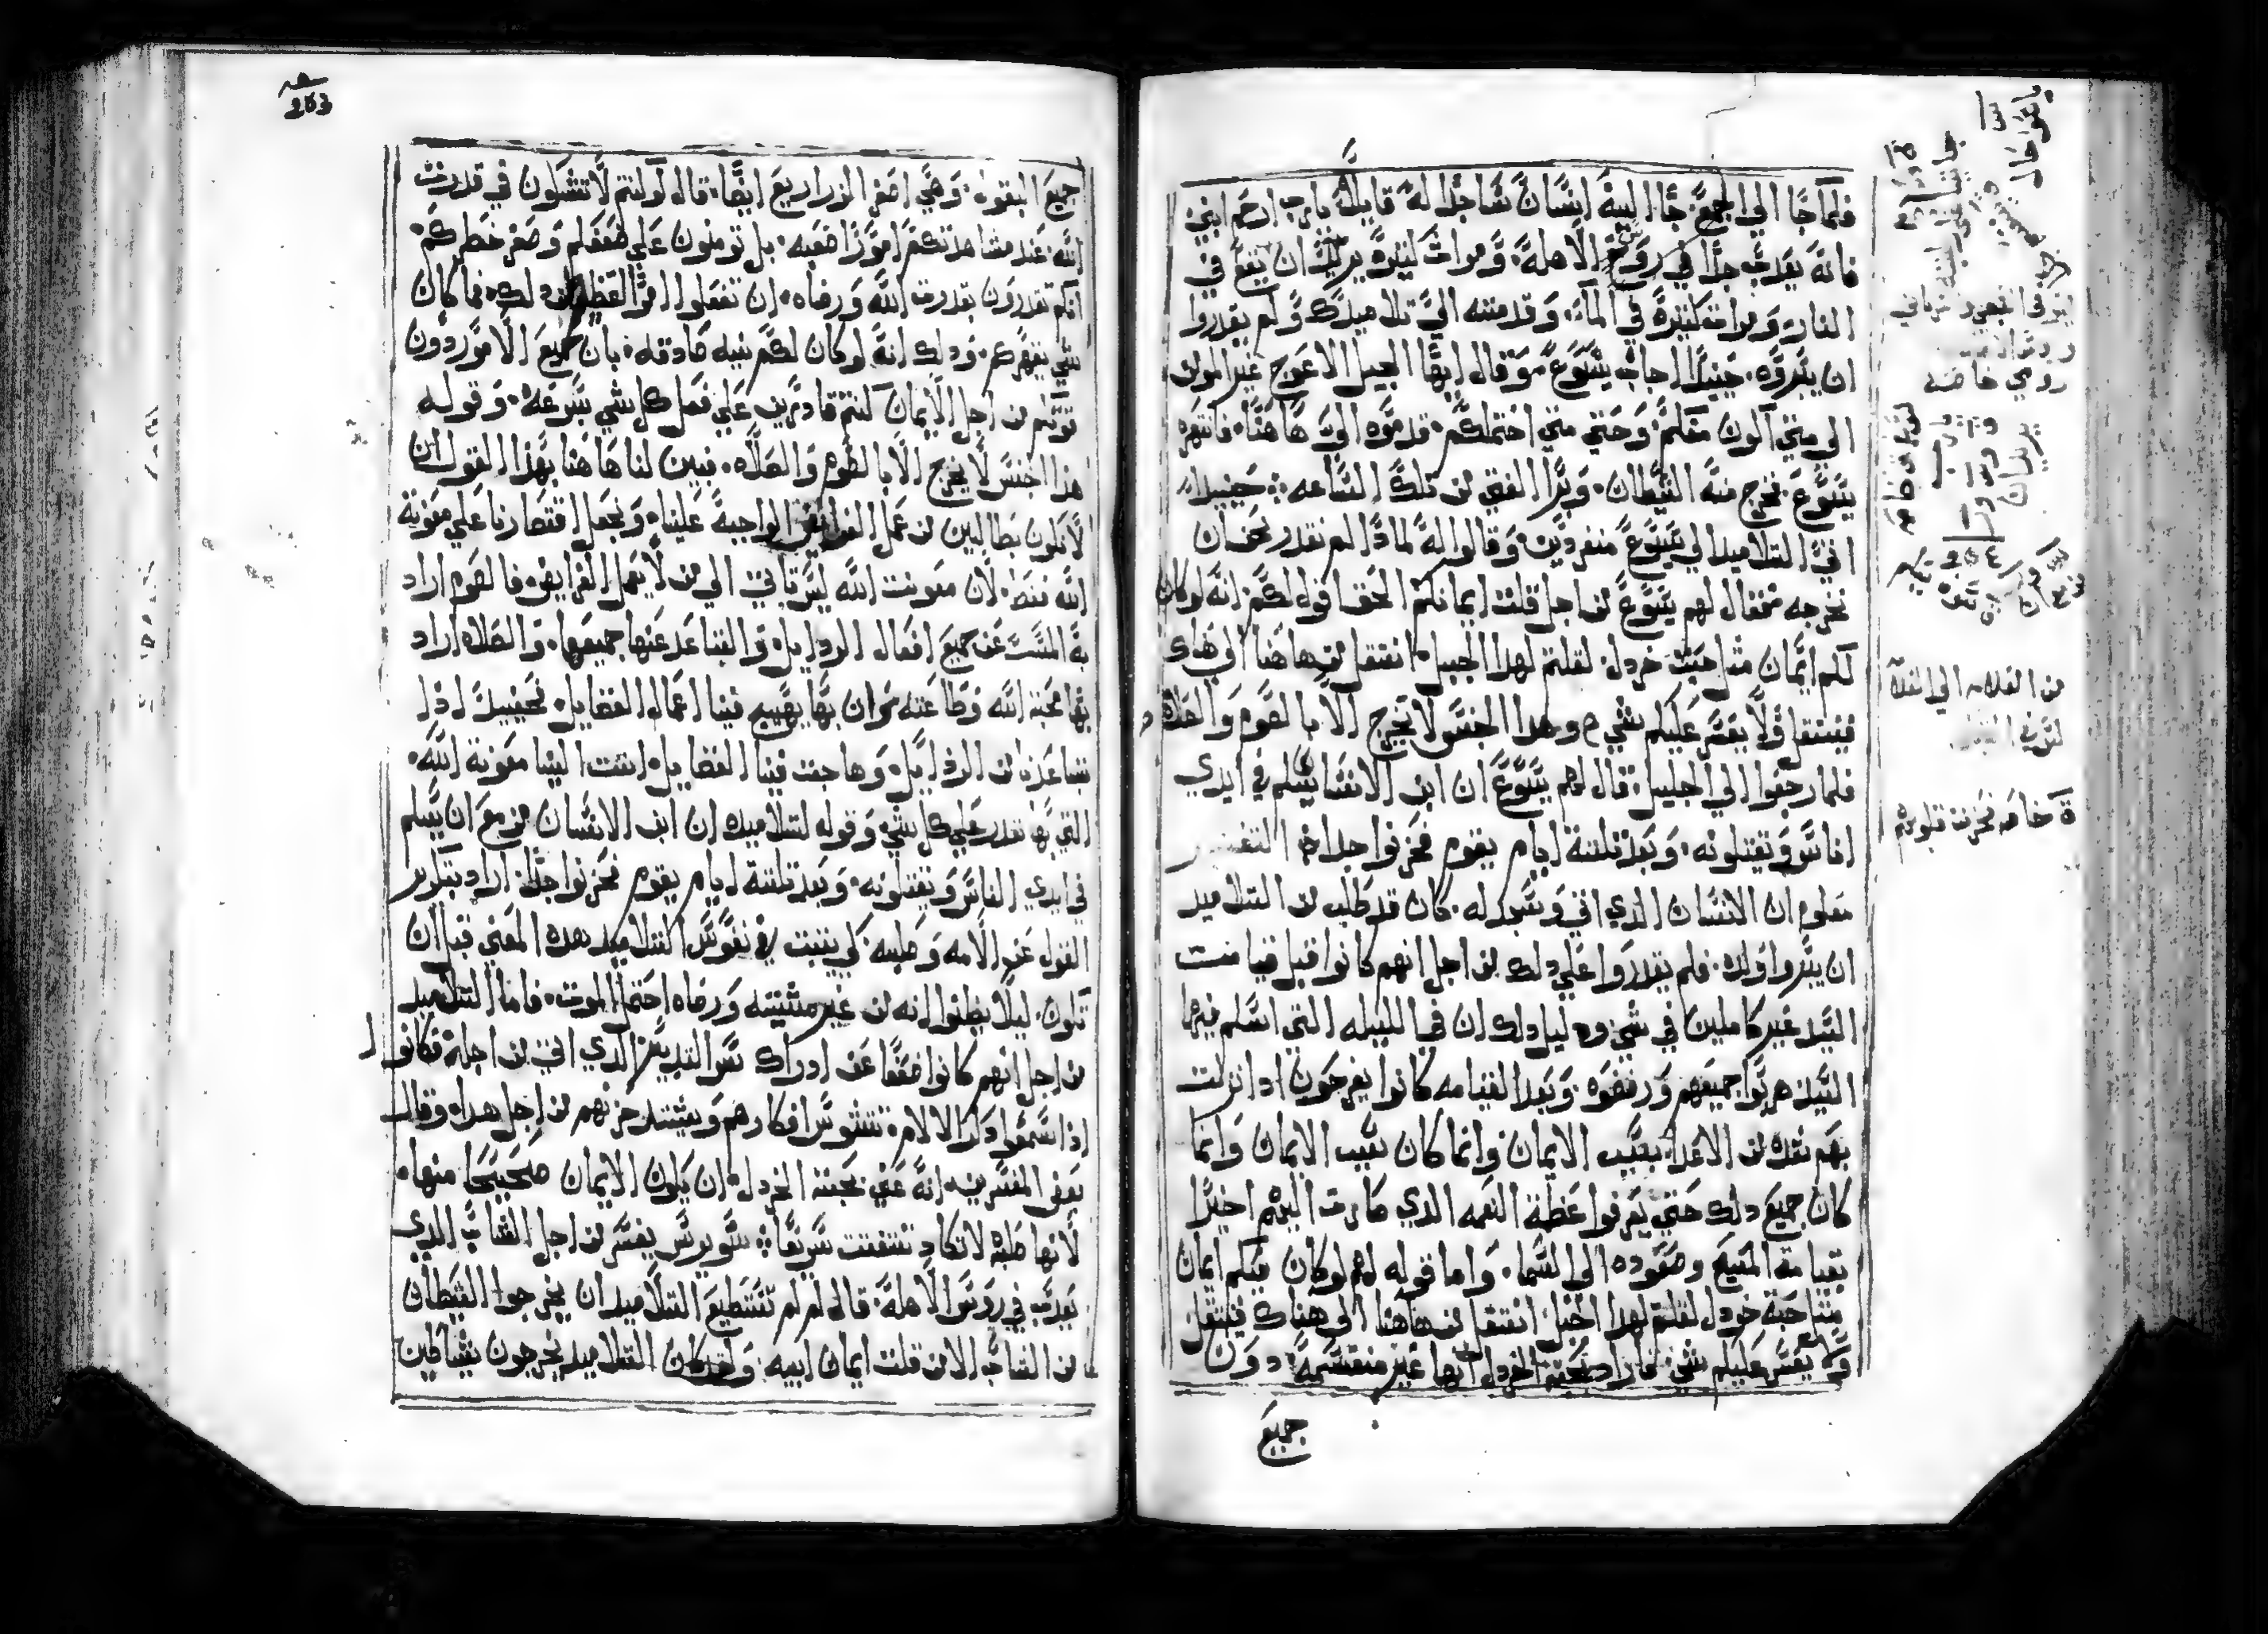 فلما جا الي الجمع. جا اليه انسان ساجد له قايلا يارب ارحم ابني
فانه يعدب جدا في روس الاهله. ومرات كتيره يريد ان يقع في
النار ومرات كتيره في الماء. وقدمته الي تلاميدك ولم يقدروا
ان يبروه. حينيدا اجاب يسوع وقال ايها الجيل الاعوج غير المومن
الي متي اكون معكم. وحتي متي احتملكم. قدموه الي هاهنا. فانتهره
يسوع. فخرج منه الشيطان. وبرا الفتي من تلك الساعه. حينيدا
اتي التلاميد الي يسوع منفردين. وقالوا له لمادا لم نقدر نحن ان
نخرجه فقال لهم يسوع من اجل قلت ايمانكم الحق اقول لكم انه لو كان
لكم ايمان متل حبت خردل لقلتم لهدا الجبل انتقل من هاهنا الي هناك
فينتقل ولا يعسر عليكم شي وهدا الجنس لا يخرج الا بالصوم والصلاه
فلما رجعوا الي الجليل قال لهم يسوع ان ابن الانسان يسلم في ايدي
اناس ويقتلونه. وبعد تلتة ايام يقوم فحزنوا جدا التفسير
معلوم ان الانسان الدي اتي وسجد له. كان قد طلب من التلاميد
ان يبروا ولده. فلم يقدروا علي دلك من اجل انهم كانوا قبل قيامت
السيد غير كاملين في شي ودليل دلك ان في الليله التي اسلم فيها
السيد هربوا جميعهم ورفضوه. وبعد القيامه كانوا يفرحون ادا نزلت
بهم شده من الاعدا بسبب الايمان وانما كان سبب الايمان وانما
كان جميع دلك حتي يعرفوا عظمة النعمه الدي صارت اليهم اخيرا
بقيامة المسيح وصعوده الي السما. واما قوله لهم لو كان فيكم ايمان
متل حبة خردل لقلتم لهدا الجبل انتقل من هاهنا الي هناك فينتقل
ولا يعسر عليكم شي. فاراد بحبة الخردل انها غير منقسمة دون
جميع
من القلايه الي القلا
ة خاصه فحزنت قلوبهم
263
جميع البقول. وهي اصغر الزراريع ايضا. قال اولستم لا تشكون في قدرت
الله. عند مشاهدتكم امورا صعبه. بل تومنون علي ضعفكم وصغر خطركم.
انكم تقدرون بقدرت الله ورضاه. ان تفعلوا العظيم دلك. فما كان
شي يقهركم. ودلك انه لو كان لكم نيه صادقه. بان جميع الامور دون
قوتكم من اجل الايمان لكنتم قادرين علي فعل كل شي بسرعه. وقوله
هدا الجنس لا يخرج الا بالصوم والصلاه. فبين لنا هاهنا بهدا القول ان
لا نكون بطالين من عمل الفرايض الواجبة علينا. ونجعل اقتصارنا علي معونة
الله فقط. لان معونت الله ليس تاتي الي من لا يعمل الفرايض. فالصوم اراد
به المسك عن جميع افعال الردايل والتباعد عنها جميعها. والصلاه اراد
بها محبة الله وطاعته وان بها يهيج فينا اعمال الفضايل. فحينيد ادا
تباعدنا من الردايل. وهاجت فينا الفضايل. اتت الينا معونة الله.
التي بها نقدر علي كل شي. وقوله لتلاميده ان ابن الانسان مزمع ان يسلم
في ايدي الناس ويقتلونه. وبعد تلتة ايام يقوم فحزنوا جدا. اراد بتكرير
القول عن الامه وصلبه. كي يتبت في نفوس التلاميد هده المعني قبل ان
تكون. ليلا يظنوا انه من غير مشيته ورضاه احتمل الموت. فاما التلاميد
من اجل انهم كانوا ضعفا عن ادراك سر التدبير الدي اتي من اجله فكانوا
ادا سمعوا دكر الالام. تتشوش افكارهم ويشتد حزنهم من اجل هدا. وقال
بعض المفسرين. انه عني بحبة الخردل. ان يكون الايمان صحيحا متلها.
لانها صلبه لا تكاد تتفتت سريعا. سويرس يفسر من اجل الشاب الدي
يعدب في روس الاهله. قال لم لم تستطيع التلاميد ان يخرجوا الشيطان
من الشاب الا من قلت ايمان ابيه. وقد كان التلاميد يخرجون شياطين